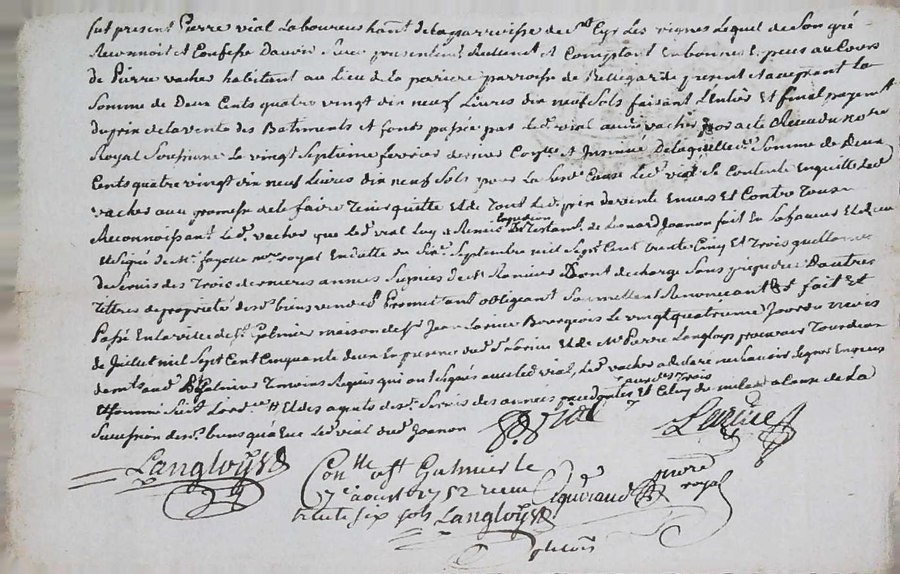 fut present Pierre vial Laboureur hant de la parroisse de St Cyr Les vignes Lequel de Son gré
Reconnoit et Confesse Davoir Receu presentement Reellement et Comptant En bonnes Especes au Cours
de Pierre vacher habitant au Lieu de la perriere parroisse de Bellegarde present et acceptant La
Somme de Deux Cents quatre vingt dix neuf Livres dix neuf Sols faisant L'entier Et final payement
du prix de la vente des Batiments et fonds passée par Led. vial aud. vacher par acte Receu du no.re
Royal Soussigné Le vingt Septieme fevrier dernier Coll et Insinué De laquelle d. Somme de Deux
Cents quatre vingt dix neuf Livres dix neuf Sols pour La Susd. Cause Led. vial Se Contente En quitte Led.
vacher avec promesse de le faire Tenir quitte Et de Tout Led. prix de vente Envers Et Contre Tous
Reconnoissant Led. vacher que Led. vial Luy a Remis Expedition Du Testamt. de Leonard Joanon fait En Sa faveur Et Receu
et Signé de Me fayolle no.re royal En datte du Septembre mil Sept Cent trente Cinq Et Trois quittances
de Servis des Trois dernieres années Signées de Mr Dont decharge Sans prejudice D'autres
Tittres de proprieté des d. biens vendus Promettant obligeant Soumettant Renonceant &c fait Et
Passé En la ville de St Galmier maison de Sr Jean Larive Bourgeois Le vingt quatrieme Jour du mois
de Juillet mil Sept Cent Cinquante deux En presence dud. Sr Larive Et de Mr Pierre Langlois Tous deux
demts. aud. St Galmier Temoins Requis qui ont Signés avec led. vial, Led. vacher a declaré ne Scavoir Signer Enquis
Et Sommé Suivt. Lord.ce Et des arrerages des d. Servis des années precedentes aux des Trois Et Celuy du a Cause de La
Succession des d. biens qu'a Eue Led. vial dud. Joanon
P. Vial
Larive
Langloys
Con.lle a St Galmier le
7e aoust 1752 receu
trente six sols Langloys
no.re
royal